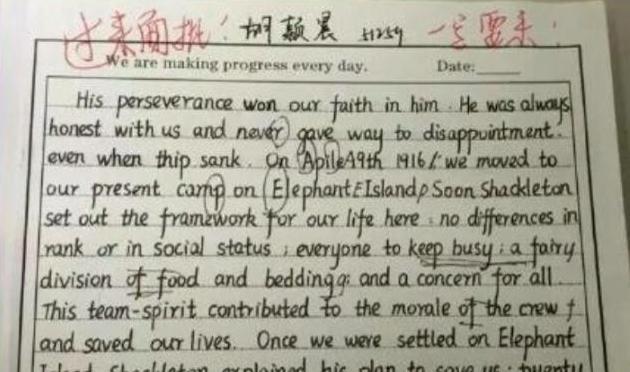 过来面批! 胡颖晨 51259 一定要来!
We are making progress every day. Date:
His perseverance won our faith in him. He was always
honest with us and never gave way to disappointment.
even when thip sank. On Apile19th 1916/ we moved to
our present camp on Elephant Island, Soon Shackleton
set out the framework for our life here: no differences in
rank or in social status; everyone to keep busy; a fairy
division of food and bedding; and a concern for all.
This team-spirit contributed to the morale of the crew
and saved our lives. Once we were settled on Elephant
Island, Shackleton explained his plan to save us: twenty